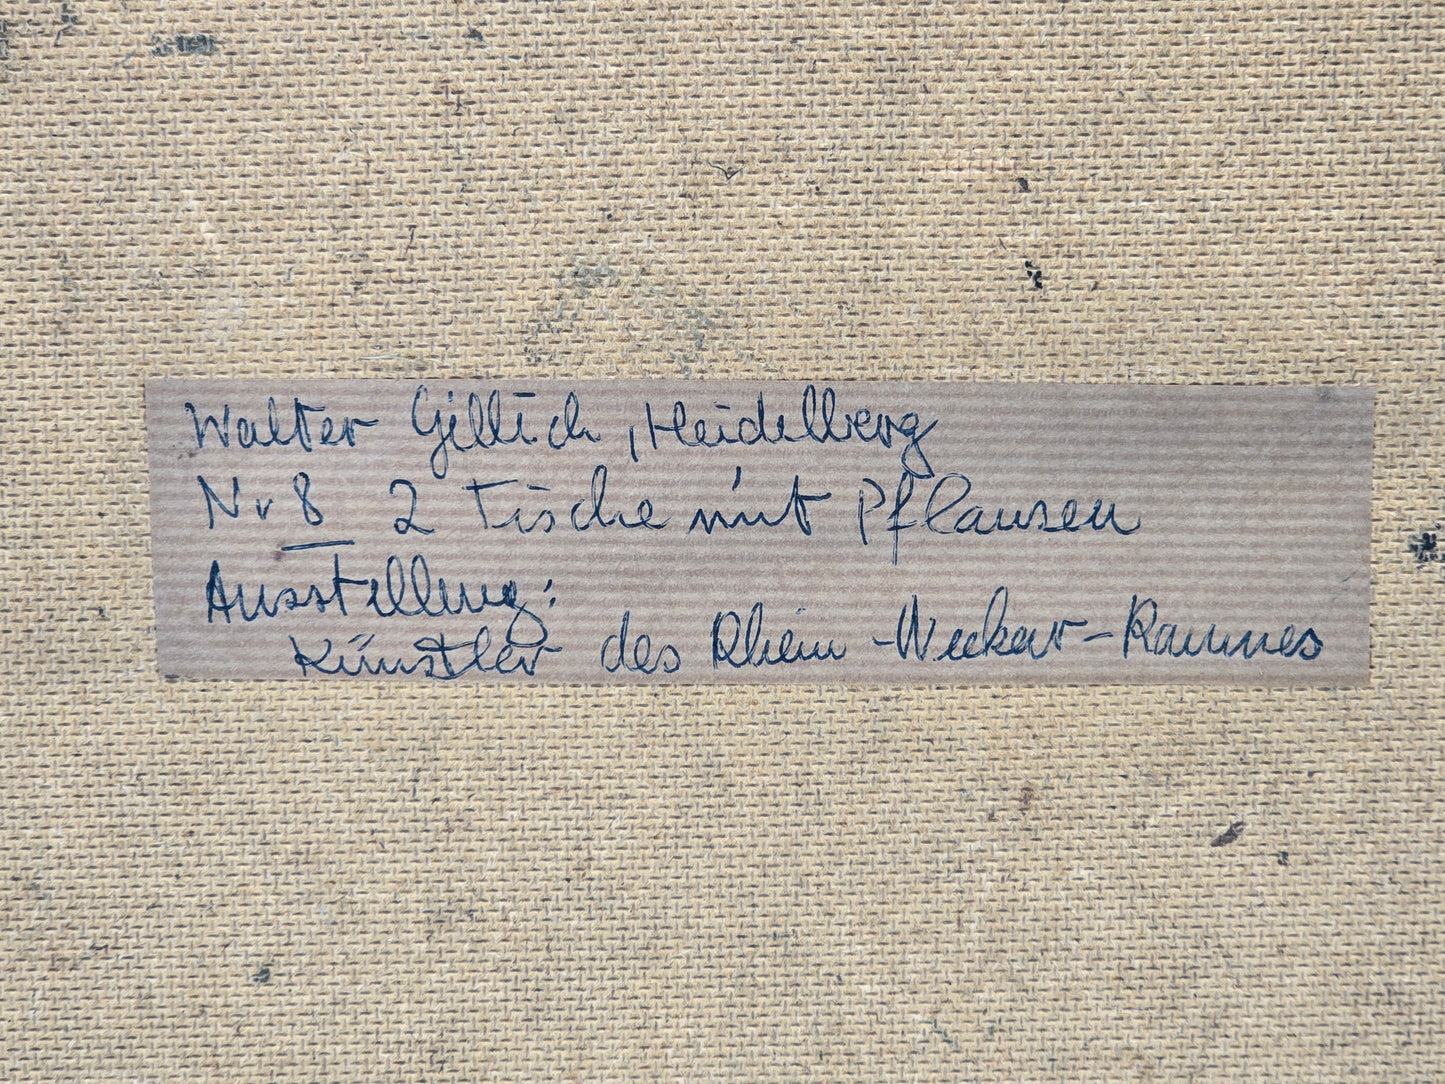 Walter Gillich, Heidelberg
Nr 8 2 Tische mit Pflanzen
Ausstellung:
Künstler des Rhein-Neckar-Raumes